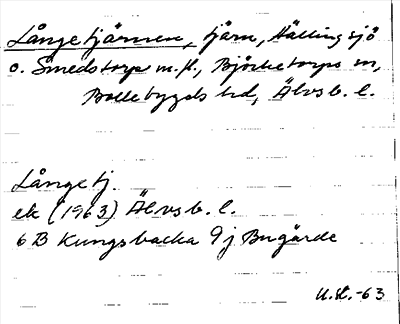 Långetjärnen, tjärn, Hällingsjö
o. Smedstorp m.fl., Björketorps sn,
Bollebygds hd, Älvsb. l.
Långetj.
ek (1963) Älvsb. l.
6 B Kungsbacka 9 j Bugärde
-63